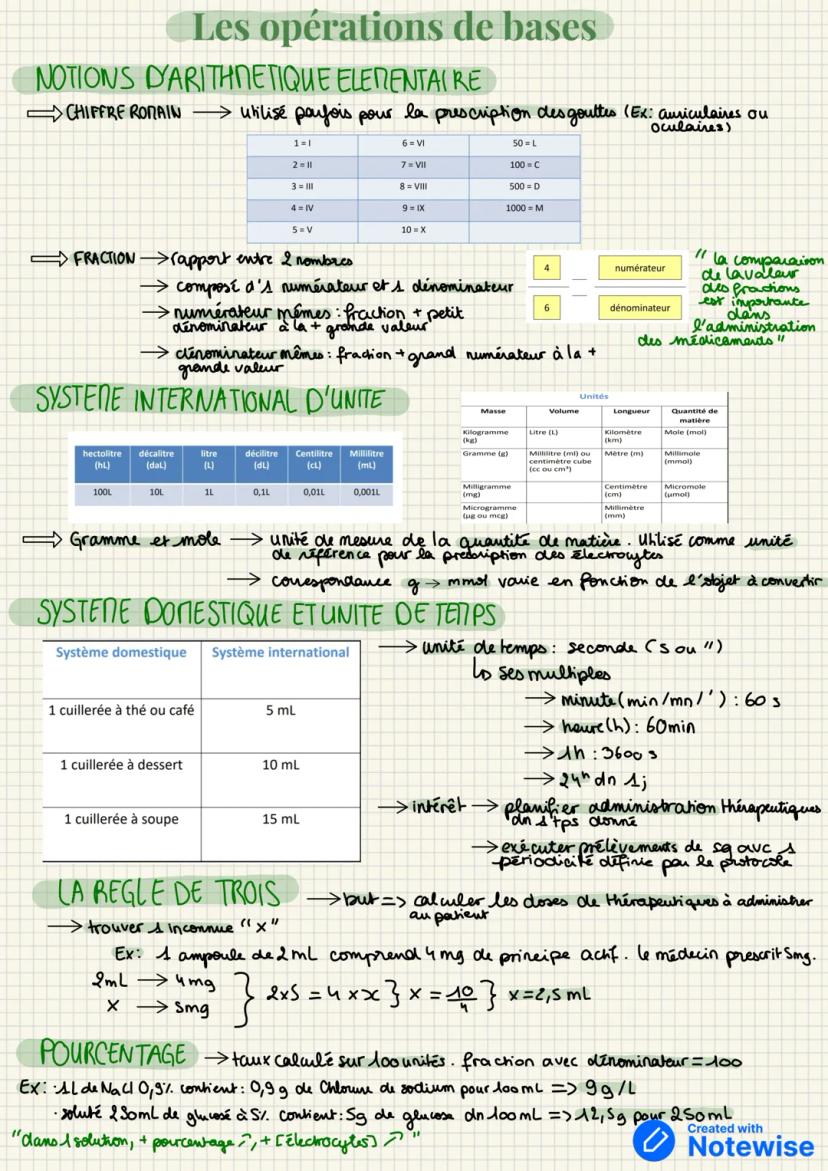 Les opérations de bases
NOTIONS D'ARITHMETIQUE ELEMENTAIRE
⇒ CHIFFRE ROMAIN → utilisé parfois pour la prescription des gouttes (Ex: auriculaires ou
oculaires)
1 = I 6 = VI 50 = L
2 = II 7 = VII 100 = C
3 = III 8 = VIII 500 = D
4 = IV 9 = IX 1000 = M
5 = V 10 = X
⇒ FRACTION → rapport entre 2 nombres
→ composé d'1 numérateur et 1 dénominateur
→ numérateur mêmes : fraction + petit
dénominateur à la + grande valeur
→ dénominateur mêmes : fraction + grand numérateur à la +
grande valeur
4 numérateur
6 dénominateur
"la comparaison
de la valeur
des fractions
est importante
dans
l'administration
des médicaments"
SYSTEME INTERNATIONAL D'UNITE
hectolitre (hL) décalitre (daL) litre (L) décilitre (dL) Centilitre (cL) Millilitre (mL)
100L 10L 1L 0,1L 0,01L 0,001L
Unités
Masse Volume Longueur Quantité de matière
Kilogramme (kg) Litre (L) Kilomètre (km) Mole (mol)
Gramme (g) Millilitre (ml) ou centimètre cube (cc ou cm³) Mètre (m) Millimole (mmol)
Milligramme (mg) Centimètre (cm) Micromole (µmol)
Microgramme (µg ou mcg) Millimètre (mm)
⇒ Gramme et mole → unité de mesure de la quantité de matière. Utilisé comme unité
de référence pour la prescription des électrocytes
→ correspondance g → mmol varie en fonction de l'objet à convertir
SYSTEME DOMESTIQUE ET UNITE DE TEMPS
Système domestique Système international
1 cuillerée à thé ou café 5 mL
1 cuillerée à dessert 10 mL
1 cuillerée à soupe 15 mL
→ unité de temps : seconde (s ou ")
↳ ses multiples
→ minute (min/mn/') : 60 s
→ heure (h) : 60min
→ 1h : 3600 s
→ 24h dn 1j
→ intérêt → planifier administration thérapeutiques
dn 1 tps donné
→ exécuter prélèvements de sg avc 1
périodicité définie par le protocole
LA REGLE DE TROIS → but => calculer les doses de thérapeutiques à administrer
au patient
→ trouver 1 inconnue "x"
Ex: 1 ampoule de 2mL comprend 4mg de principe actif. le médecin prescrit 5mg.
2mL → 4mg
X → 5mg
} 2x5 = 4 x x } x = 10/4 } x=2,5 mL
POURCENTAGE → taux calculé sur 100 unités. fraction avec dénominateur = 100
Ex: · 1L de NaCl 0,9% contient : 0,9 g de Chlorure de sodium pour 100 mL => 9g/L
· soluté 250mL de glucosé à 5% contient : 5g de glucose dn 100mL => 12,5g pour 250mL
"dans 1 solution, + pourcentage ↗, + [électrocytes] ↗"
Created with
Notewise